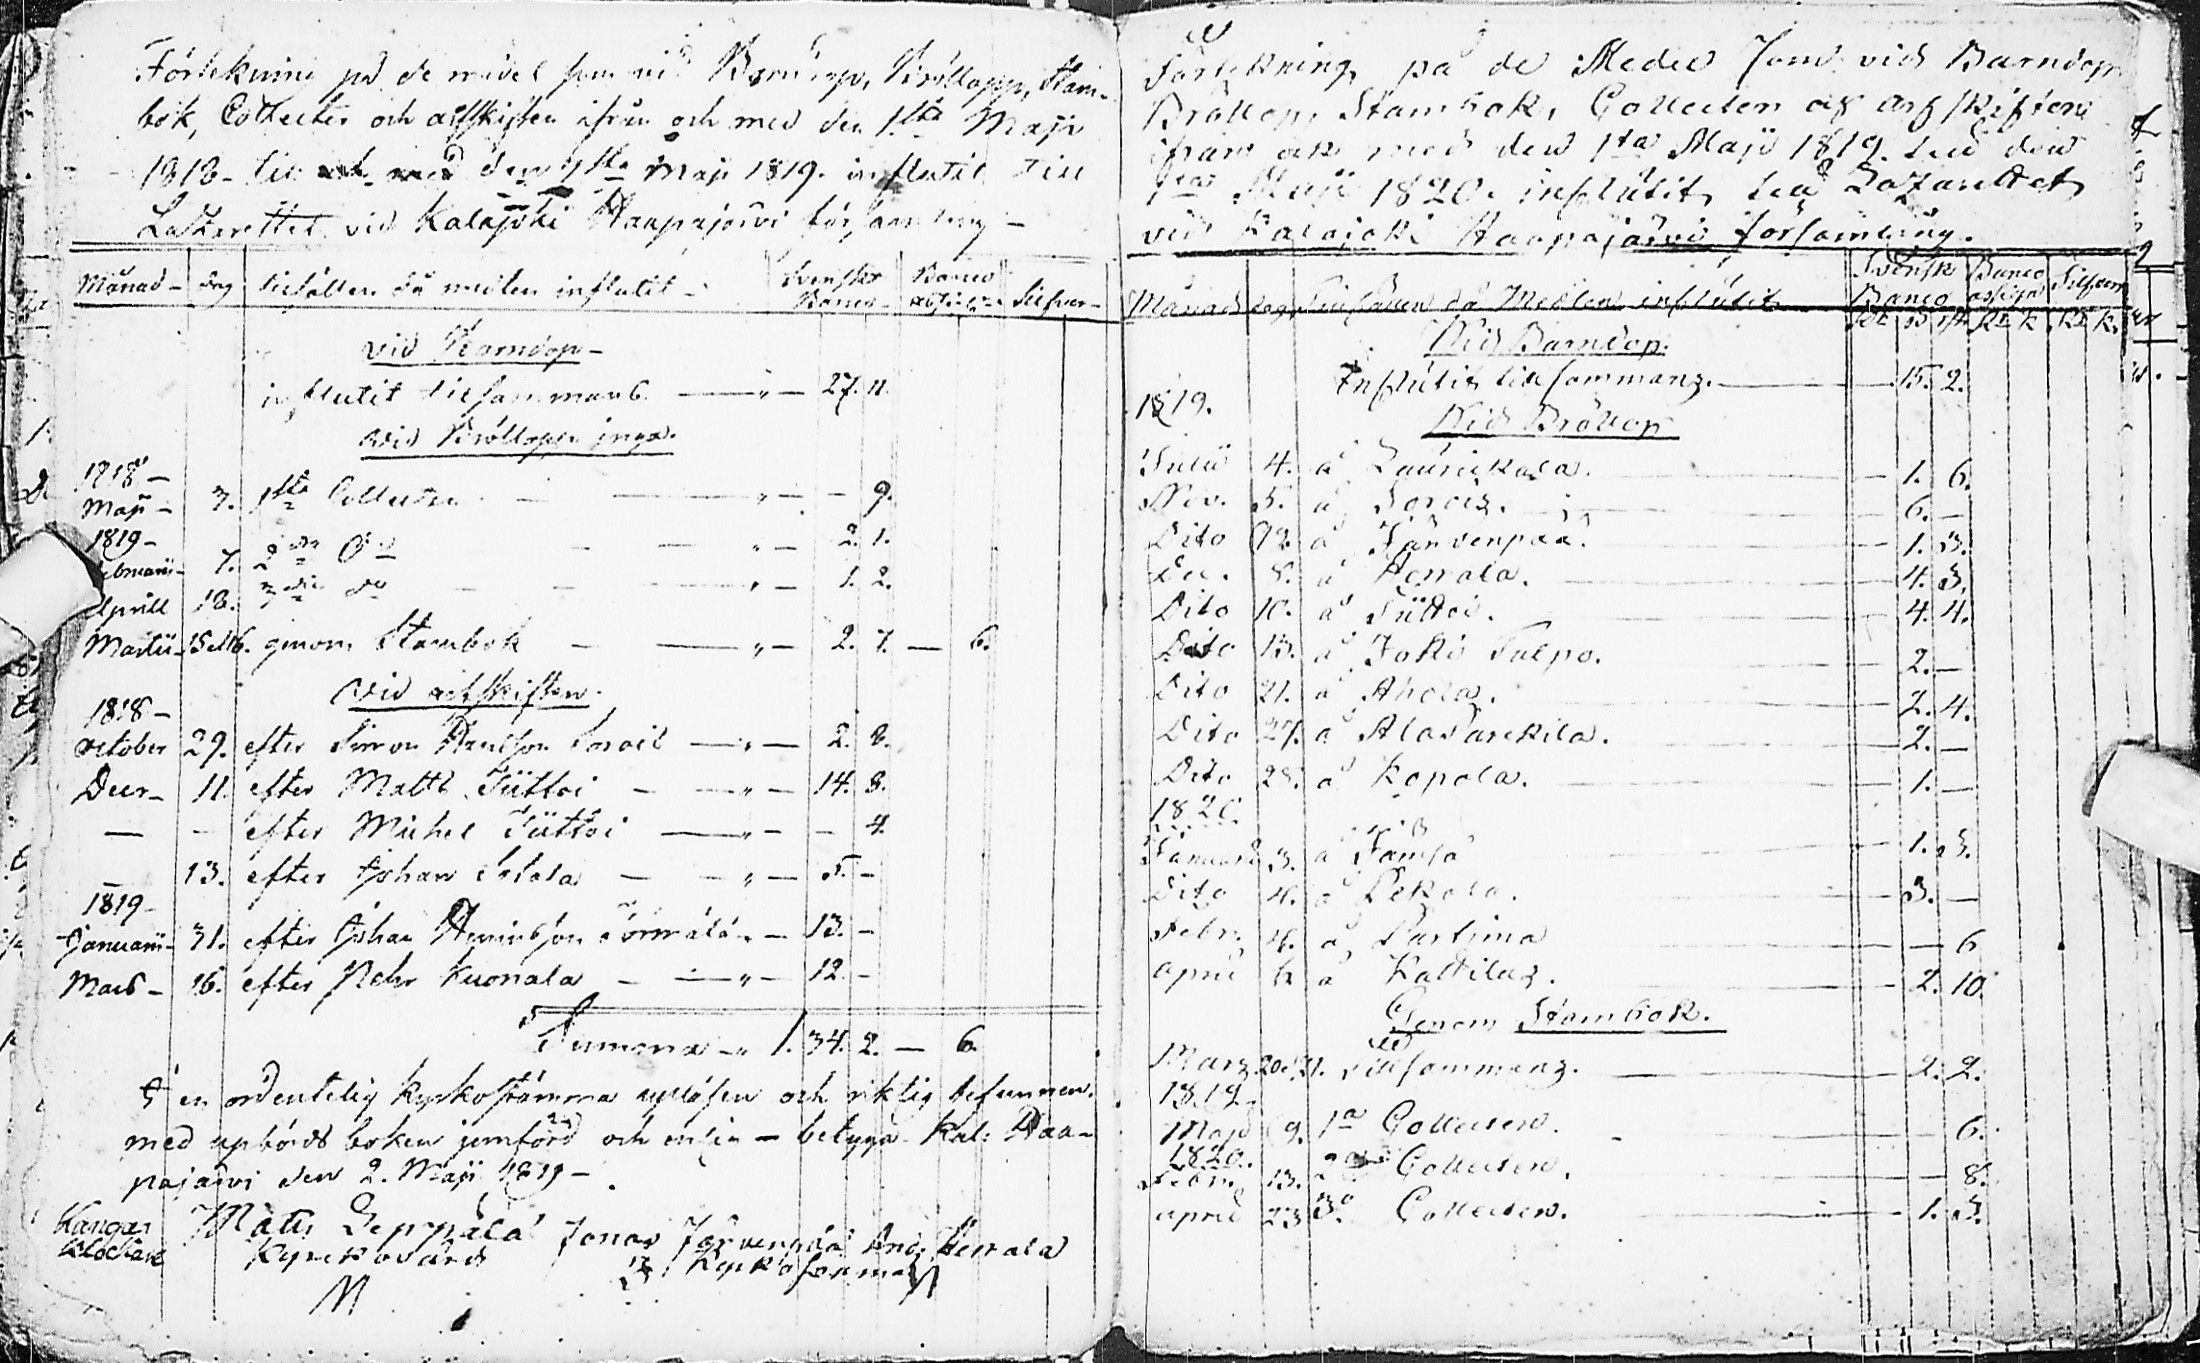 Förtekning på de medel som vid Barndop, Bröllopp, Stam-
bok, Collecter och arfskiften ifrån och med den 1sta Maji
1818 - till och med den 1sta Maji 1819. influtit till
Lazarettet vid Kalajoki Haapajärvi församling -
Månad - dag tillfällen då medlen influtit - Svenska Banco - Banco Silfver -
vid Barndop -
influtit tillsammans - 27. 11.
vid Bröllopp inga.
1818 -
Maji - 7. 1sta Collecten - - 9.
1819 -
Februarii - 7. 2dra do - 2. 1.
Aprill 18. 3die do - 1. 2.
Martii - 15 et 16. genom Stambok - 2. 7. - 6.
vid arfskiften.
1818 -
October 29. efter Simon - 2. 8.
Decr - 11. efter Matts Tüttoi - 14. 8.
- - efter Michel Tüttoi - - 4.
- 13. efter Johan - 5. -
1819 -
Januarii - 31. efter Johan Henricsson Törmälä - 13. -
Mars - 16. efter Pehr Kuonala - 12. -
Summa - 1. 34. 2. - 6.
I en ordentelig kyrkostämma uppläsen och riktig befunnen.
med upbörds boken jemförd och enlig - betyga Kal: Haa-
pajärvi den 2. Maji 1819 -
Kangas Matts Leppälä Jonas Järvenpää And: Herrala
klockare Kyrckovärd Kyrko
M
Förtekning på de Medel som vid Barndop
Bröllop, Stambok, Collecten ock arfskiftene
ifrån ock med den 1sta Maji 1819. till den
1sta Maji 1820. influtit till Lazarettet
vid Kalajoki Haapajärvi församling.
Månad dag Tillfällen då Medlen influtit Svensk Banco Banco assign Silfver
Vid Barndop.
Influtit tillsammans. 15. 2.
1819.
Vid Bröllop
Julii 4. å Laurickala. 1. 6.
Nov. 5. å Sorois. 6. -
Dito 12. å Järvenpää. 1. 3.
Dec. 5. å Herrala. 4. 3.
Dito 10. å Tüttoi. 4. 4.
Dito 13. å Joki Tulpo. 2. -
Dito 21. å Ahola. 2. 4.
Dito 27. å Ala Parckila. 2. -
Dito 28. å Kopola. 1. -
1820.
Januari 3. å Jämsä 1. 3.
Dito 4. å Pekola. 3. -
Febr. 4. å Partima - 6
April 6 å Kattilas. 2. 10.
Genom Stambok.
Mars 20 et 21. Tillsammans. 2. 2.
1819.
Maji 9. 1a Collecten. - 6.
1820.
Febr. 13. 2a Collecten. - 8.
April 23 3a Collecten. 1. 3.